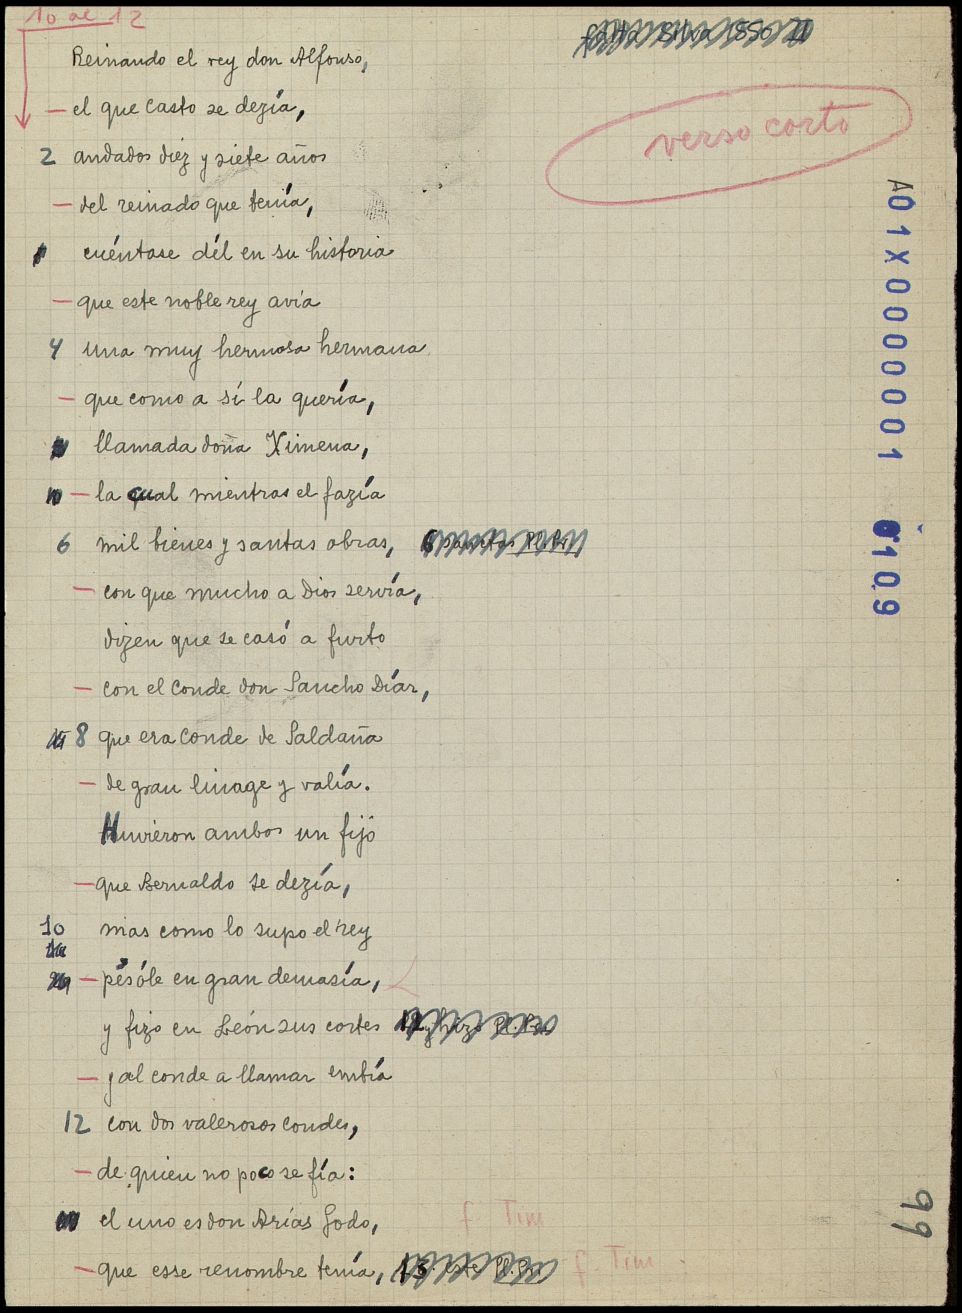 10 al 12
falta Silva 1550 II
Reinando el rey don Alfonso,
verso corto
— el que Casto se dezía,
2 andados diez y siete años
— del reinado que tenía,
cuéntase dél en su historia
— que este noble rey avía
4 una muy hermosa hermana
— que como a sí la quería,
llamada doña Ximena,
— la qual mientras el fazía
6 mil bienes y santas obras,
— con que mucho a Dios servía,
dizen que se casó a furto
— con el Conde don Sancho Díaz,
8 que era Conde de Saldaña
— de gran linage y valía.
Huvieron ambos un fijo
— que Bernaldo se dezía,
10 mas como lo supo el rey
— pésóle en gran demasía,
y fizo en León sus cortes 12 y hizo Pl. Pr.
— y al conde a llamar embía
12 con dos valerosos condes,
— de quien no poco se fía:
el uno es don Arias Godo, f. Tim
— que esse renombre tenía, 13 este Pl. Pr. f. Tim
A01X0000001 0109
99